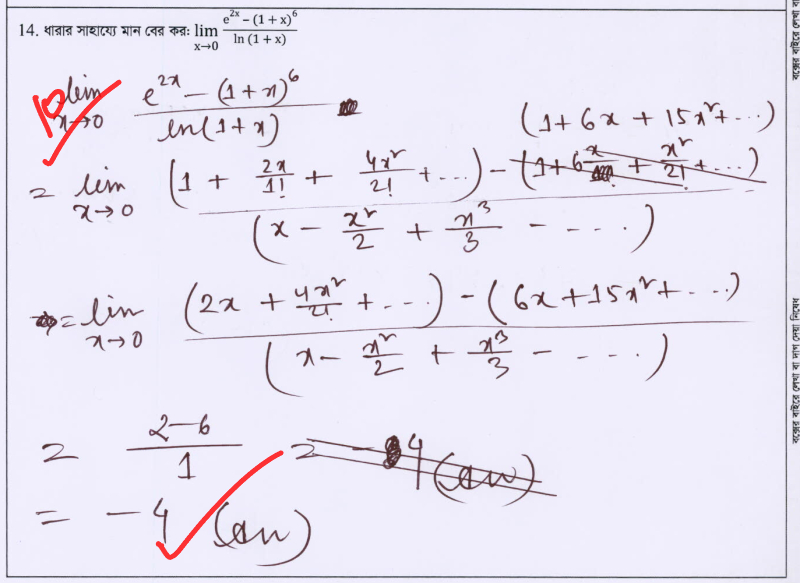 14. ধারার সাহায্যে মান বের কর: lim x→0 e^2x – (1 + x)^6 / ln (1 + x)
10
lim x→0 e^2x – (1+x)^6 / ln(1+x)
(1+6x + 15x² + ...)
= lim x→0 (1 + 2x/1! + 4x²/2! + ...) – (1+6 x/1! + x²/2! + ...) / (x – x²/2 + x³/3 – ....)
= lim x→0 (2x + 4x²/2! + ...) – (6x+15x²+...) / (x – x²/2 + x³/3 – ....)
= 2–6 / 1 = –4 (an)
= –4 (an)
বক্সের বাইরে লেখা বা দাগ দেয়া নিষেধ
বক্সের বাইরে লেখা বা